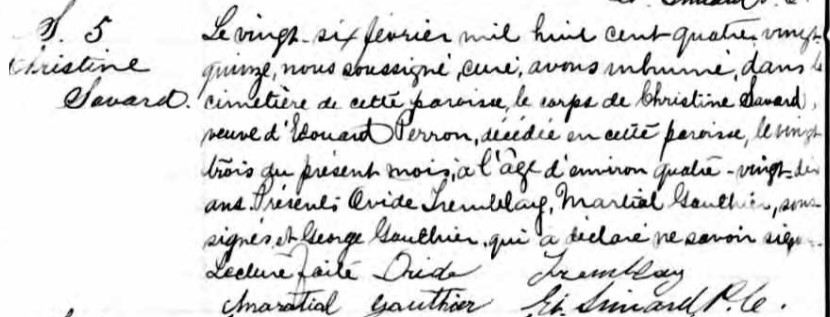 S. 5
Christine
Savard.
Le vingt-six février mil huit cent quatre-vingt-
quinze, nous soussigné, curé, avons inhumé, dans le
cimetière de cette paroisse, le corps de Christine Savard,
veuve d'Edouard Perron, décédée en cette paroisse, le vingt
trois du présent mois, à l'âge d'environ quatre-vingt-dix
ans. Présents Ovide Tremblay, Martial Gauthier, sous-
signés, et George Gauthier, qui a déclaré ne savoir signer.
Lecture faite Ovide Tremblay
Maratial Gauthier Et. Simard P.C.